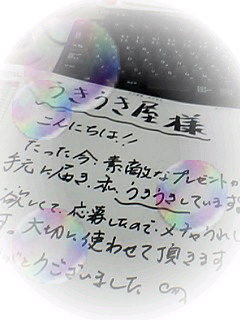 うきうき屋様
こんにちは!!
たった今、素敵なプレゼントが
手元に届き、本、うきうきしています
欲しくて、応募したので、メチャうれし
す。大切に使わせて頂きます
がとうございました